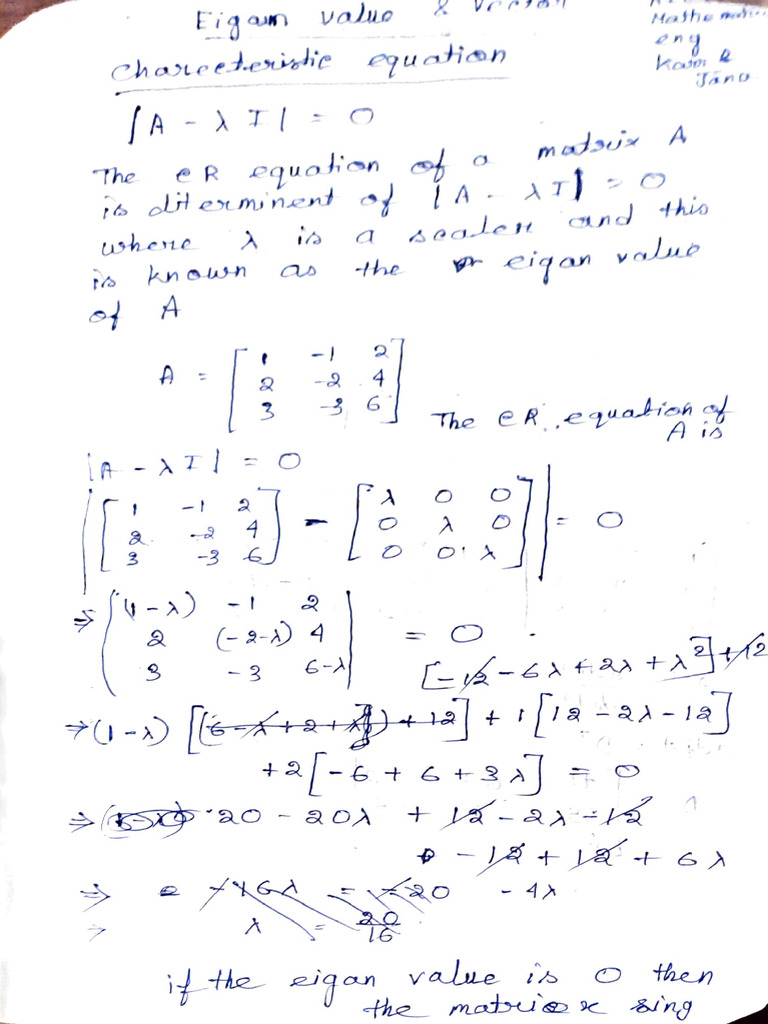 Eigan value &
Mathe
eng
Charecteristic equation
|A - λI| = 0
The CR equation of a matrix A
is diterminent of |A - λI| = 0
where λ is a scaler and this
is known as the eigan value
of A
A = [1 -1 2
2 -2 4
3 -3 6]
The CR. equation of
A is
|A - λI| = 0
|[1 -1 2
2 -2 4
3 -3 6] - [λ 0 0
0 λ 0
0 0 λ]| = 0
⇒ |(1-λ) -1 2
2 (-2-λ) 4
3 -3 6-λ| = 0
[-12 - 6λ + 2λ + λ²] + 12
⇒ (1-λ) [(6-λ+2+λ)) + 12] + 1 [12 - 2λ - 12]
+2 [-6 + 6 + 3λ] = 0
⇒ 20 - 20λ + 12 - 2λ - 12
- 12 + 12 + 6λ
⇒ -16λ = -20 - 4λ
⇒ λ = 20/16
if the eigan value is 0 then
the matrix sing